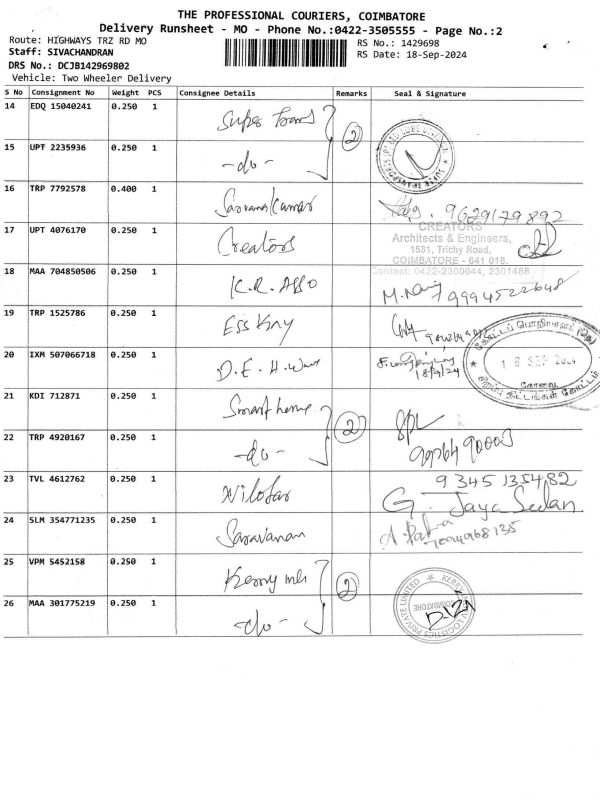 THE PROFESSIONAL COURIERS, COIMBATORE
Delivery Runsheet - MO - Phone No.:0422-3505555 - Page No.:2
Route: HIGHWAYS TRZ RD MO
RS No.: 1429698
Staff: SIVACHANDRAN
RS Date: 18-Sep-2024
DRS No.: DCJB142969802
Vehicle: Two Wheeler Delivery
S No Consignment No Weight PCS Consignee Details Remarks Seal & Signature
14 EDQ 15040241 0.250 1 Super Trans
2
15 UPT 2235936 0.250 1 -do-
16 TRP 7792578 0.400 1 Saravanakumar 9629179892
17 UPT 4076170 0.250 1 Creators
CREATORS
Architects & Engineers,
1531, Trichy Road,
COIMBATORE - 641 018.
Contact: 0422-2300044, 2301488
18 MAA 704850506 0.250 1 K.R. Asso
19 TRP 1525786 0.250 1 Ess Kay
20 IXM 507066718 0.250 1 D.E.H. 18/9/24
கோட்டப் பொறியாளர் (நெ)
18 SEP 2024
கோவை
சிறப்பு திட்டங்கள் கோட்டம்
21 KDI 712871 0.250 1 Smart home
2
22 TRP 4920167 0.250 1 -do-
23 TVL 4612762 0.250 1 Nilofar 9345135482
G. Jaya Seelan
24 SLM 354771235 0.250 1 Saravanan
25 VPM 5452158 0.250 1 Kerry
2
26 MAA 301775219 0.250 1 -do-
LOGISTICS PRIVATE LIMITED
COIMBATORE